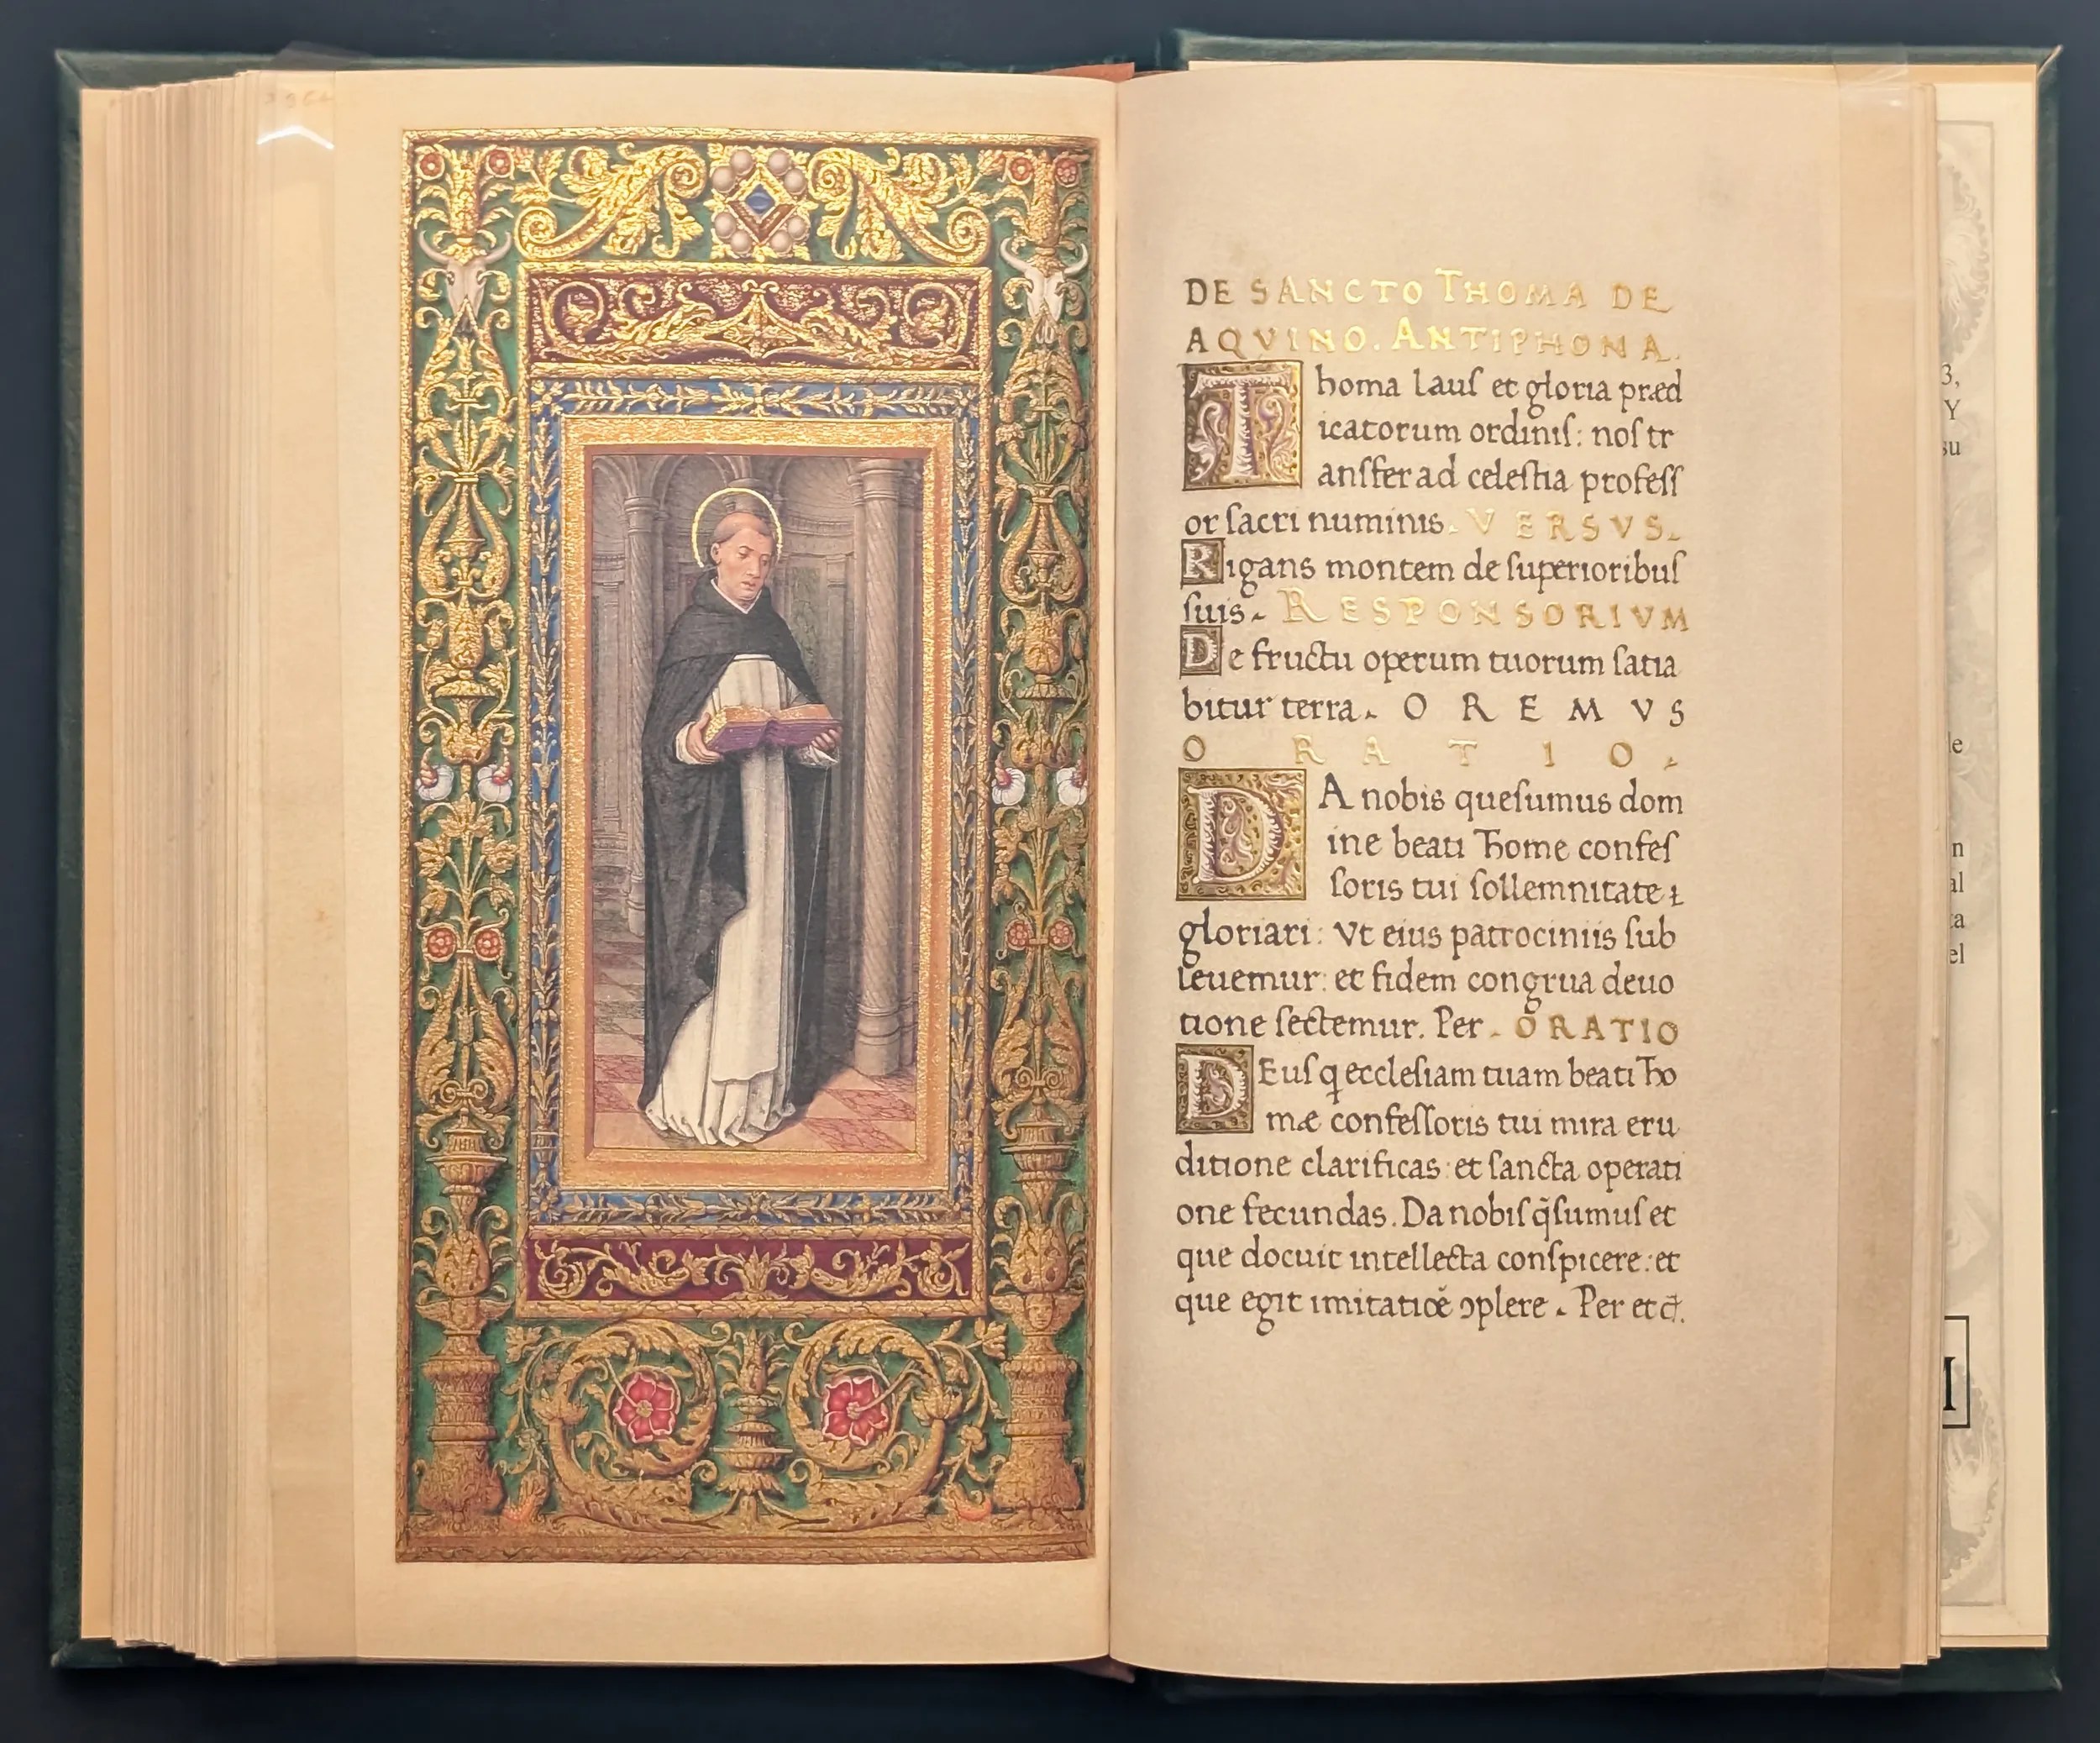 DE SANCTO THOMA DE
AQVINO. ANTIPHONA.
Thoma lauſ et gloria præd
icatorum ordiniſ: noſ tr
anſfer ad celeſtia profeſſ
or ſacri numinis. VERSVS.
Rigans montem de ſuperioribuſ
ſuis. RESPONSORIVM
De fructu operum tuorum ſatia
bitur terra. OREMVS
ORATIO.
DA nobis queſumus dom
ine beati Thome confeſ
ſoris tui ſollemnitate
gloriari: Vt eius patrociniis ſub
leuemur: et fidem congrua deuo
tione ſectemur. Per. ORATIO
DEuſ q̢ eccleſiam tuam beati Tho
mæ confeſſoris tui mira eru
ditione clarificas: et ſancta operati
one fecundas. Da nobiſ q̃ſumuſ et
que docuit intellecta conſpicere: et
que egit imitatiõe ↄplere. Per et c̃.
3,
Y
su
le
n
al
ta
el
M